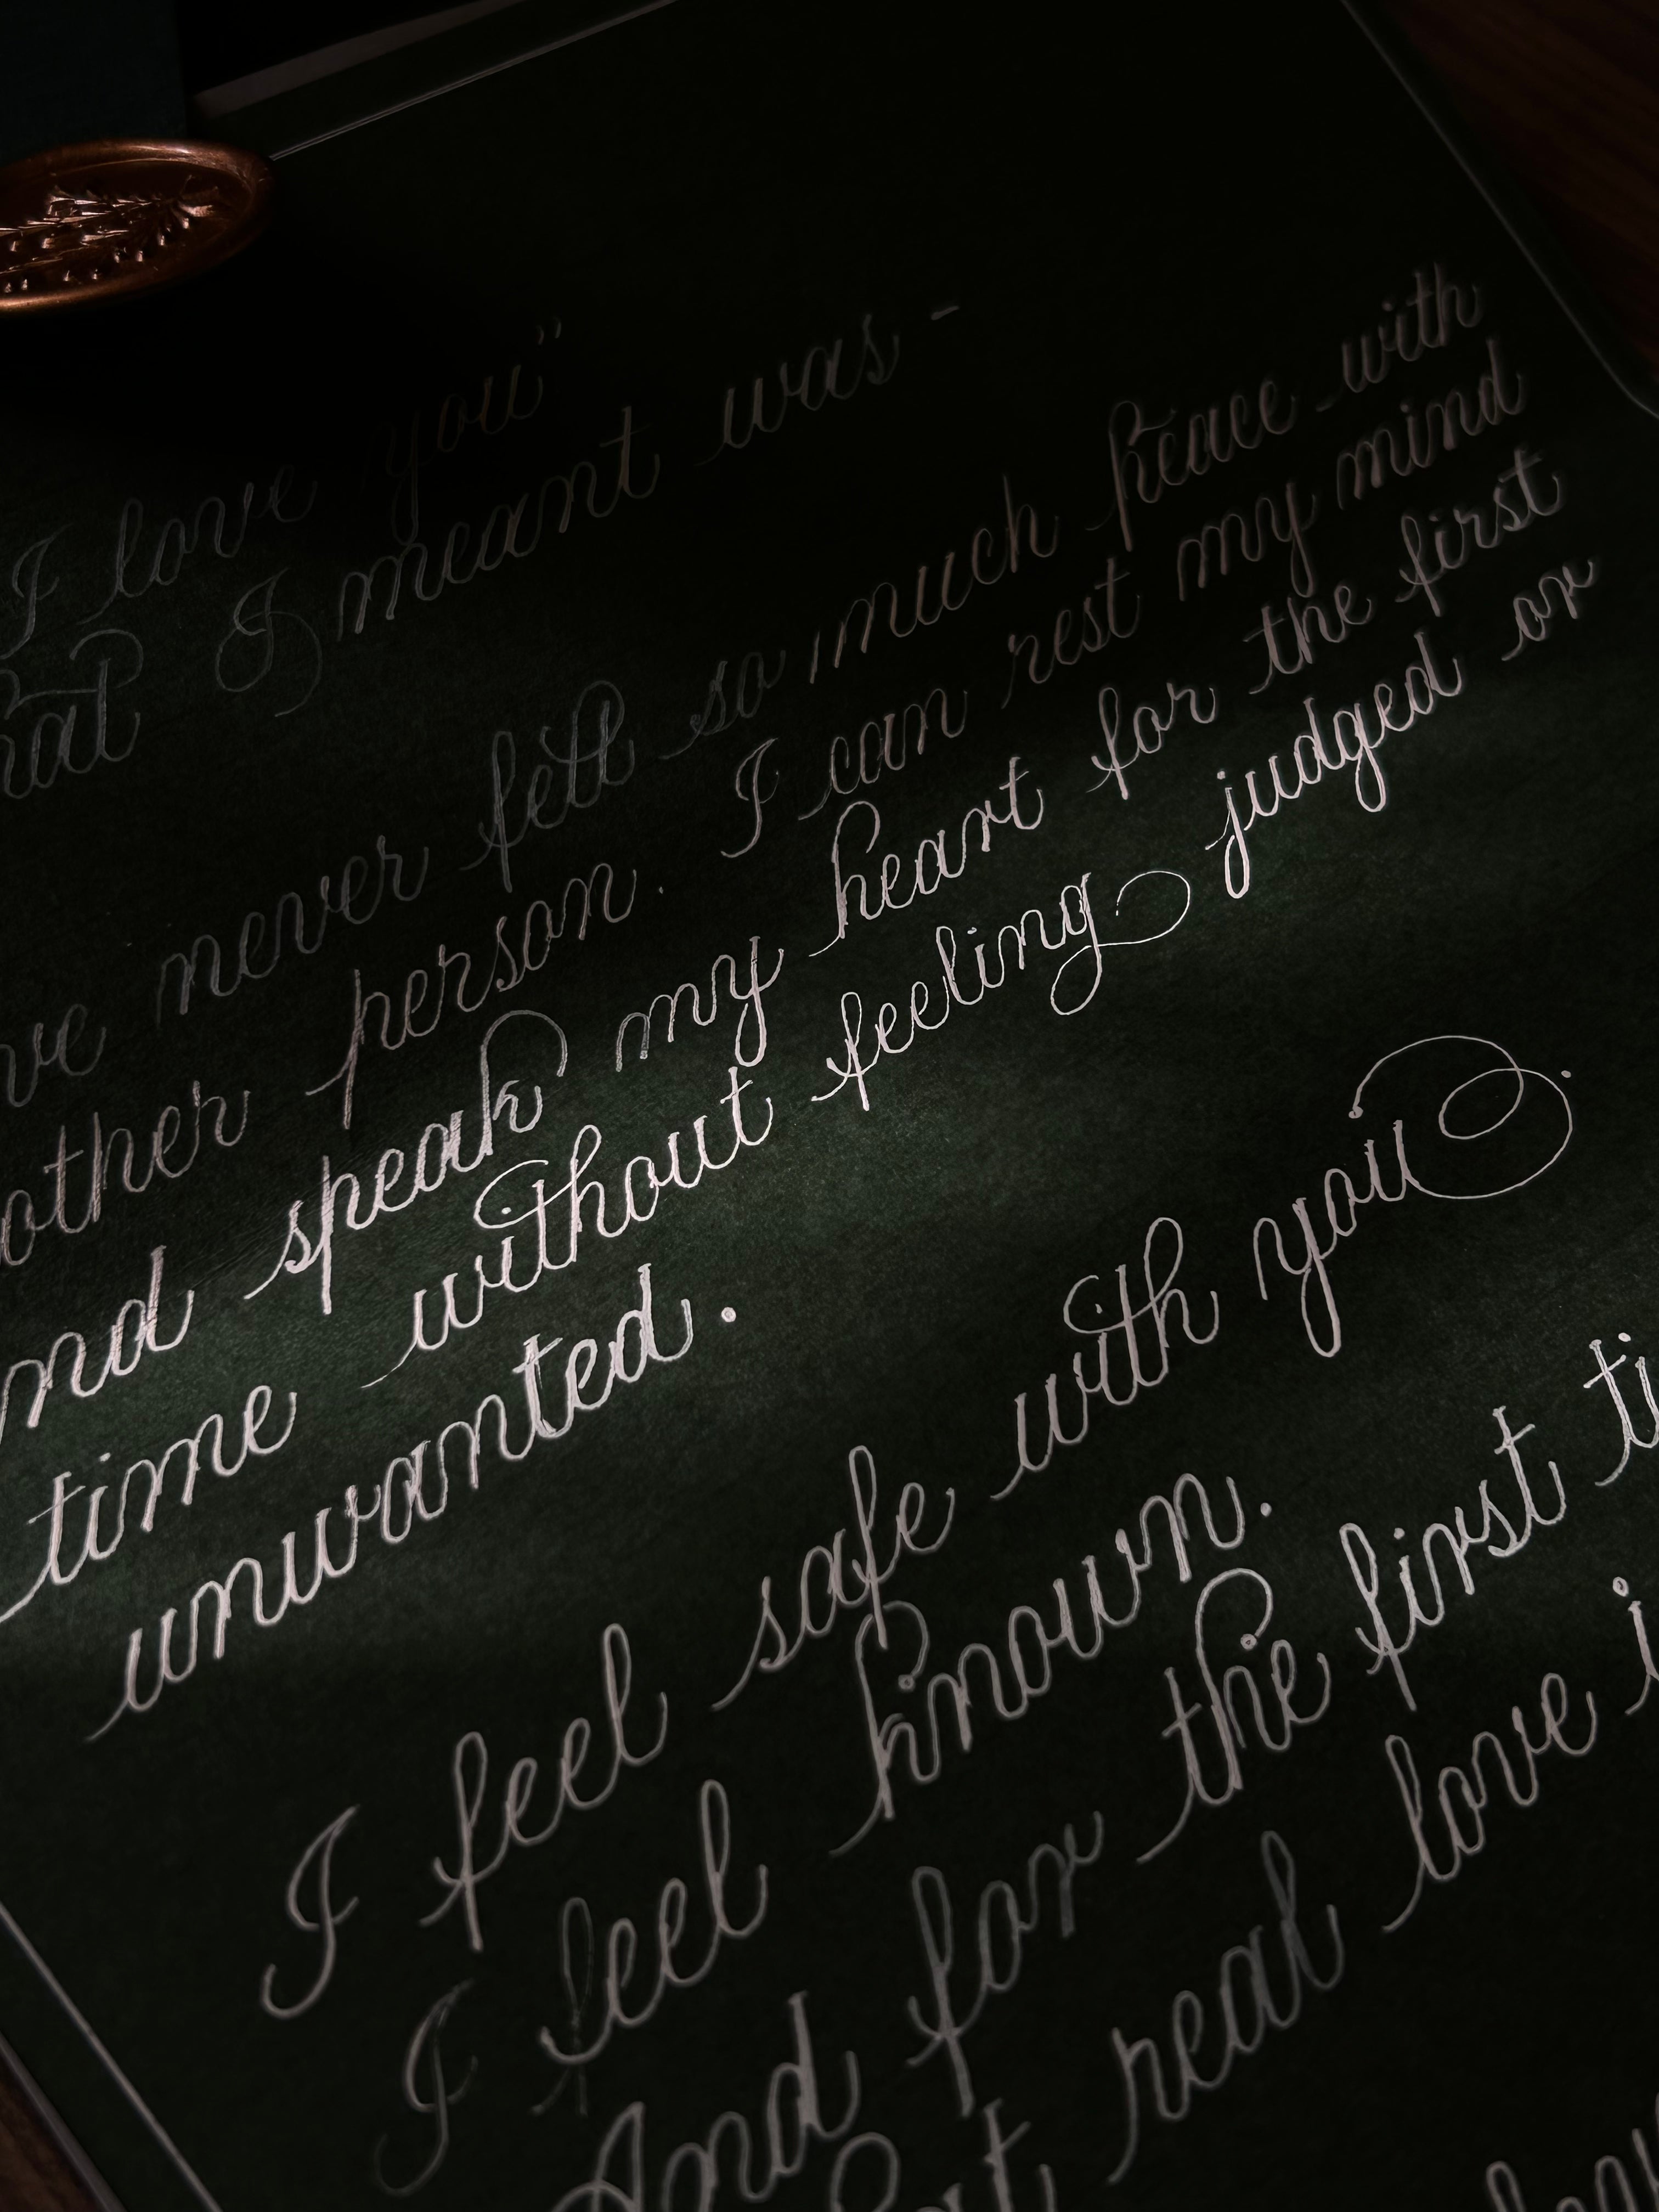 I love you"
hat I meant was -
ve never felt so much peace with
other person. I can rest my mind
nd speak my heart for the first
time without feeling judged or
unwanted.
I feel safe with you
I feel known.
And for the first ti
at real love i